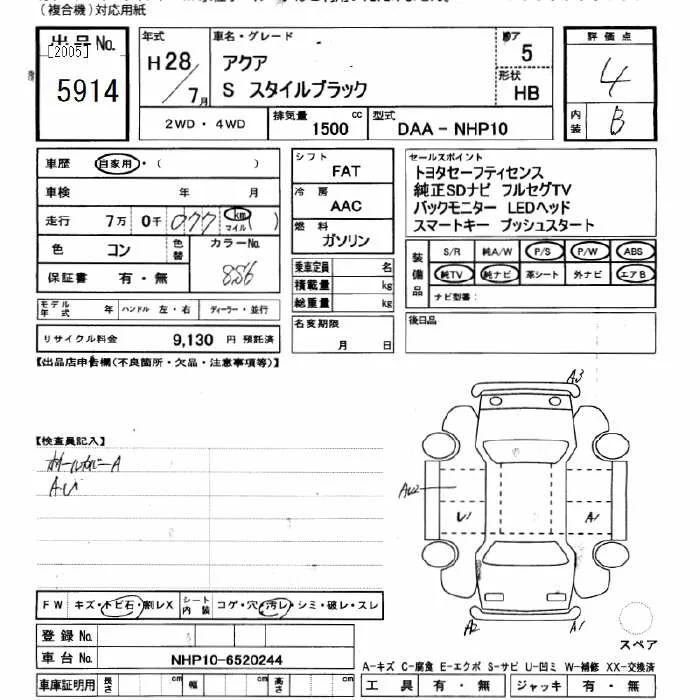 (複合機)対応用紙
出品No.
[2005]
5914
年式
H28/7月
車名・グレード
アクア
S スタイルブラック
ドア
5
形状
HB
評価点
4
内装
B
2WD・4WD
排気量
1500 cc
型式
DAA-NHP10
車歴 自家用・( )
車検 年 月
走行 7万 0千 077 km マイル ( )
色 コン 色替 カラーNo. 8S6
保証書 有・無
モデル年式 年 ハンドル 左・右 ディーラー・並行
リサイクル料金 9,130 円 預託済
シフト
FAT
冷房
AAC
燃料
ガソリン
乗車定員 名
積載量 kg
総重量 kg
名変期限
月 日
セールスポイント
トヨタセーフティセンス
純正SDナビ フルセグTV
バックモニター LEDヘッド
スマートキー プッシュスタート
装備品
S/R 純A/W P/S P/W ABS
純TV 純ナビ 革シート 外ナビ エアB
ナビ型番:
後日品
【出品店申告欄(不良箇所・欠品・注意事項等)】
【検査員記入】
ホイールカバーA
AU
A3
AU2
U1
A1
A2
A1
スペア
FW キズ・トビ石・割レX シート内装 コゲ・穴・汚レ・シミ・破レ・スレ
登録No.
車台No. NHP10-6520244
A-キズ C-腐食 E-エクボ S-サビ U-凹ミ W-補修 XX-交換済
車庫証明用 長さ cm 幅 cm 高さ cm
工具 有・無 ジャッキ 有・無